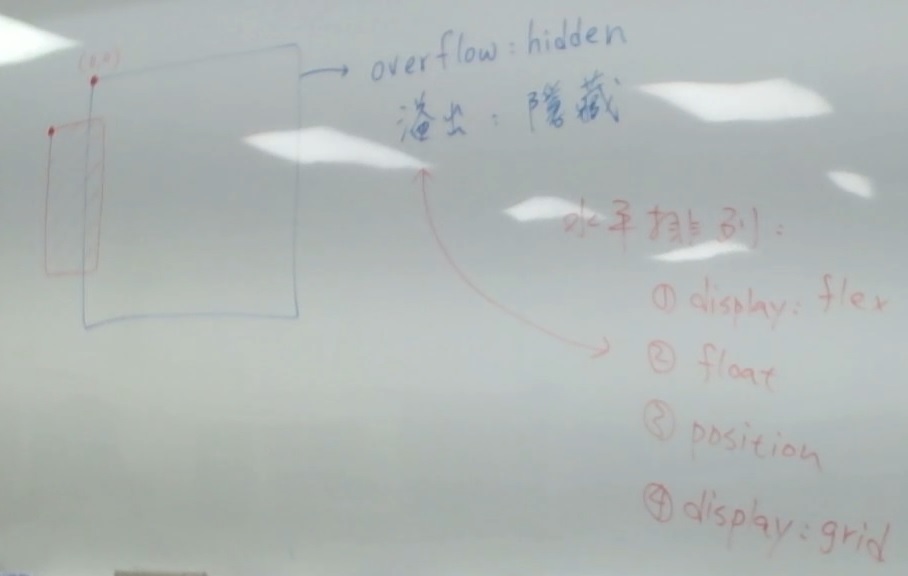 (0,0)
overflow:hidden
溢出:隱藏
水平排列:
① display:flex
② float
③ position
④ display:grid